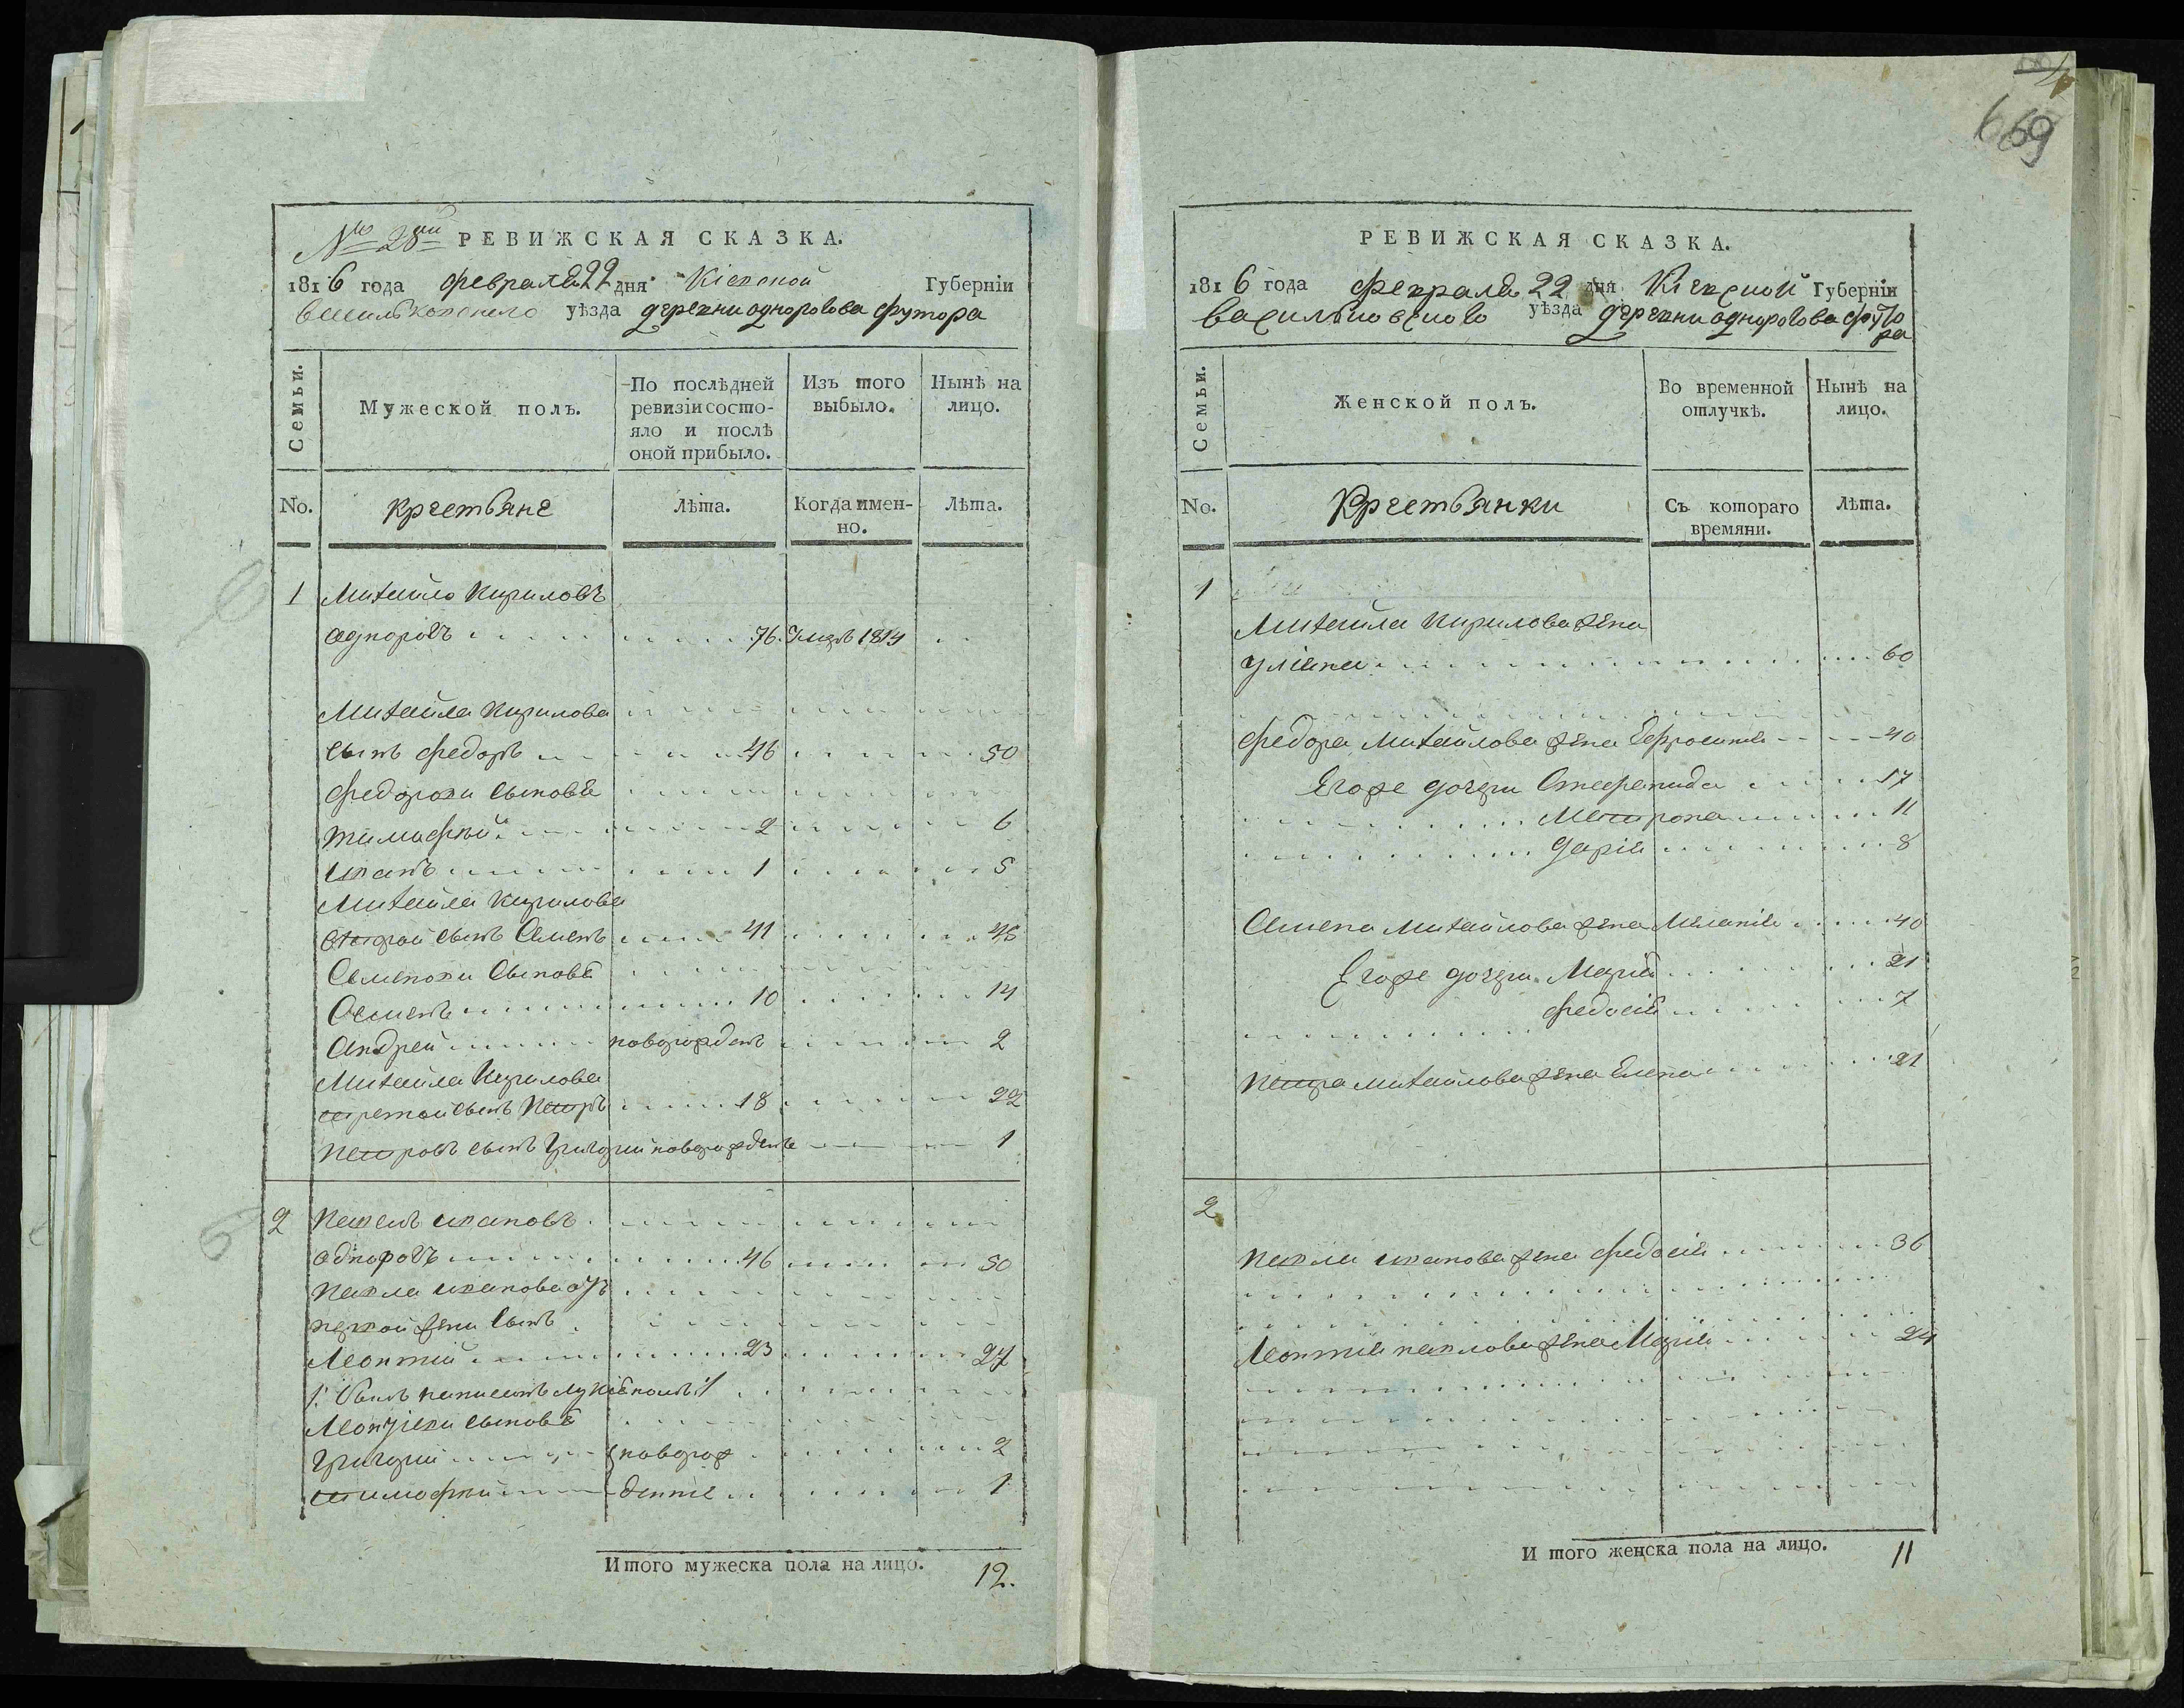 669
№ 28й РЕВИЖСКАЯ СКАЗКА.
1816 года февраля 22 дня Кіевской Губерніи
Васильковскаго уѣзда деревни однорогова футора
Семьи.
Мужеской полъ.
По послѣдней ревизіи состояло и послѣ оной прибыло.
Изъ того выбыло.
Нынѣ на лицо.
No.
крестьяне
Лѣта.
Когда именно.
Лѣта.
1 Михайло Кириловъ
однорогъ 76. Умеръ 1814
Михайла Кирилова
сынъ федоръ 46 50
федоровы сыновѣ
тимофѣй 2 6
иванъ 1 5
Михайла Кирилова
второй сынъ Семенъ 41 45
Семеновы Сыновѣ
Семенъ 10 14
Андрей новорожденъ 2
Михайла Кирилова
третой сынъ Петръ 18 22
Петровъ сынъ Григорий новорожденъ 1
2 Павелъ ивановъ
однорогъ 46 50
Павла иванова отъ
первой жены Сынъ
Леонтий 23 27
Леонтіевы сыновѣ
Григорий новорож 2
тимофѣй денние 1
Итого мужеска пола на лицо. 12.
РЕВИЖСКАЯ СКАЗКА.
1816 года февраля 22 дня Кіевской Губерніи
Васильковского уѣзда деревни однорогова футо
ра
Семьи.
Женской полъ.
Во временной отлучкѣ.
Нынѣ на лицо.
No.
Крестьянки
Съ котораго времяни.
Лѣта.
1
Михайла Кирилова жена
улияна 60
федора Михайлова жена Ефросиния 40
Егоже дочери Стефанида 17
Матрона 11
Дарія 8
Семена Михайлова жена Мелания 40
Егоже дочери Марія 21
федосія 7
Петра михайлова жена Елена 21
2
Павла иванова жена федосія 36
Леонтия павлова жена Марія 24
И того женска пола на лицо. 11